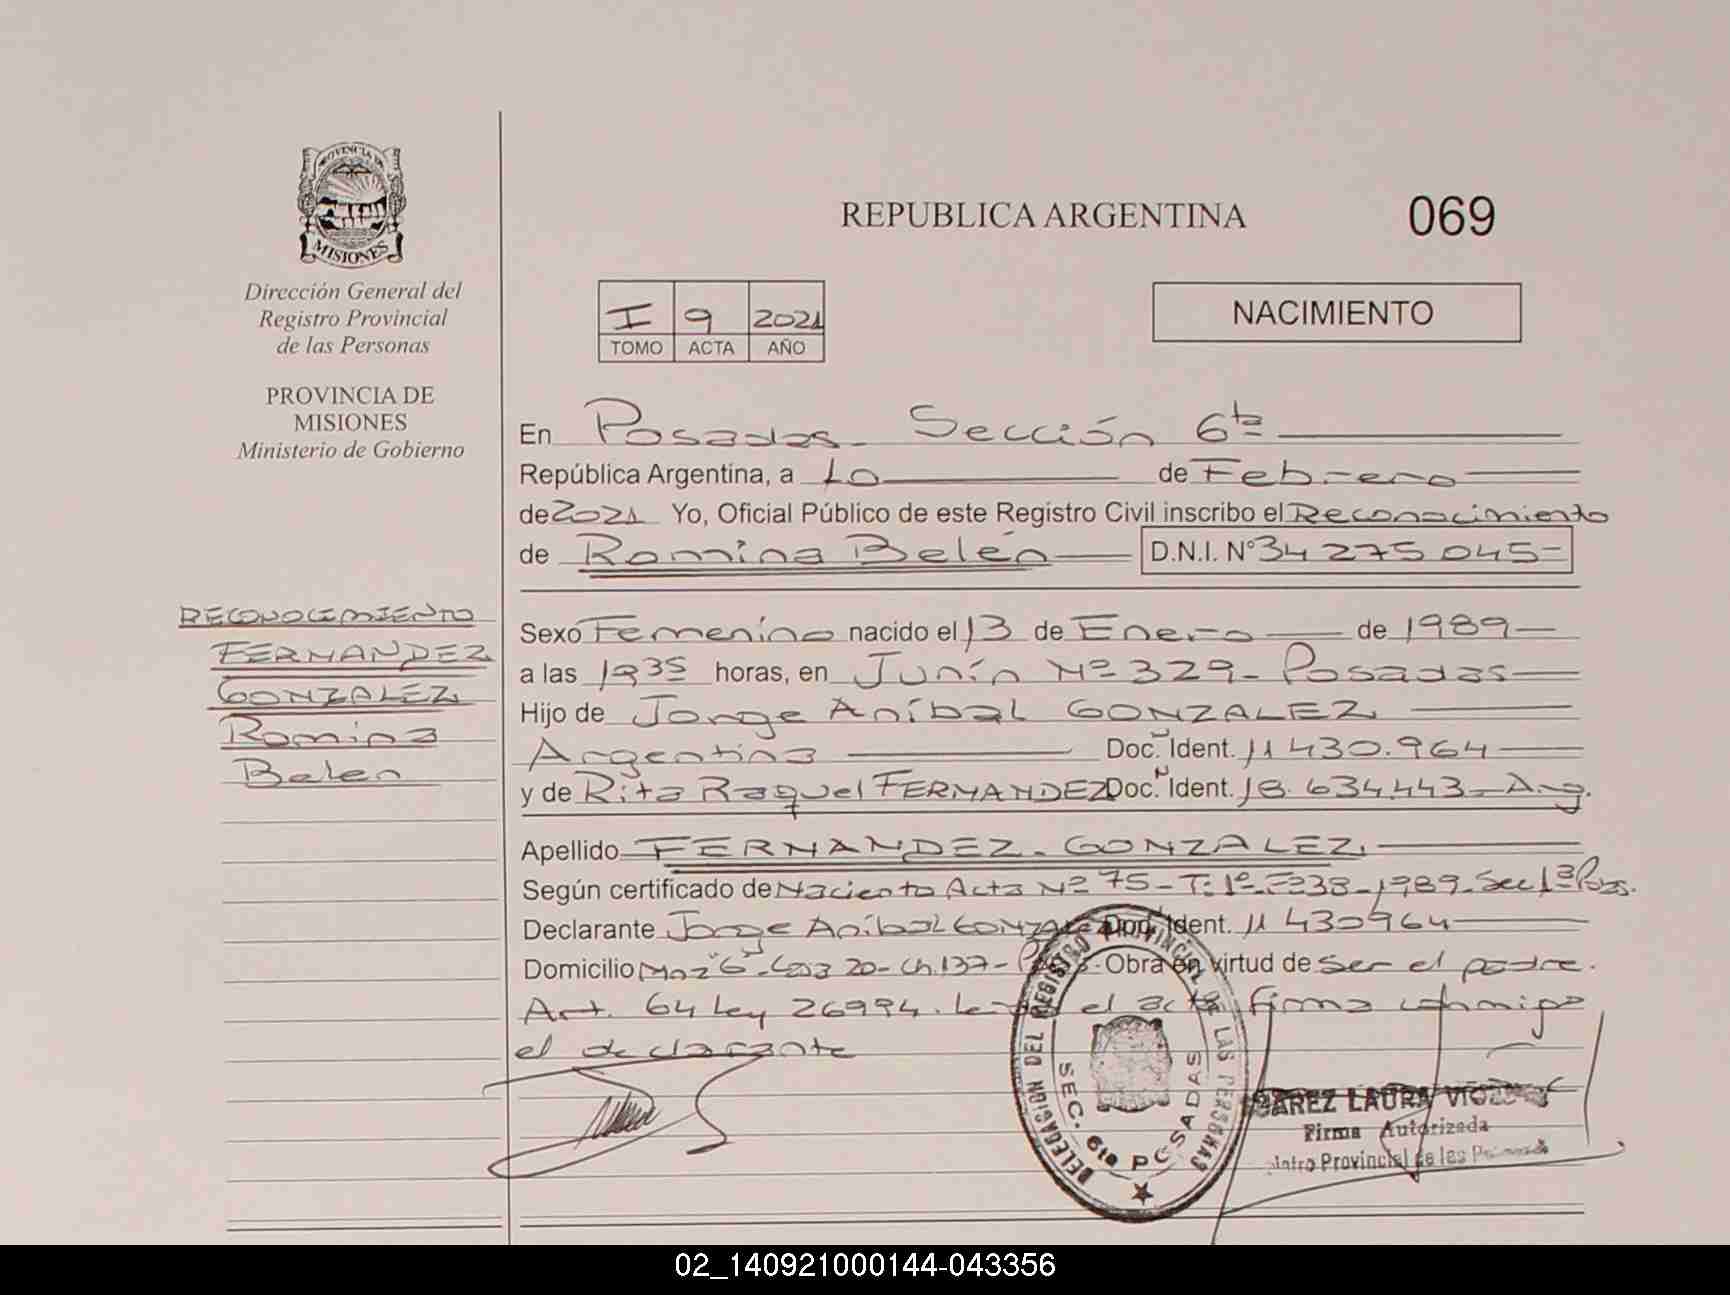 PROVINCIA DE
MISIONES
Dirección General del
Registro Provincial
de las Personas
PROVINCIA DE
MISIONES
Ministerio de Gobierno
RECONOCIMIENTO
FERNANDEZ
GONZALEZ
Romina
Belen
REPUBLICA ARGENTINA
069
I 9 2021
TOMO ACTA AÑO
NACIMIENTO
En Posadas - Sección 6ta
República Argentina, a 10 de Febrero
de 2021 Yo, Oficial Público de este Registro Civil inscribo el Reconocimiento
de Romina Belén D.N.I. N° 34 275 045-
Sexo Femenino nacido el 13 de Enero de 1989
a las 1935 horas, en Junín Nº 329 - Posadas
Hijo de Jorge Aníbal GONZALEZ
Argentina Doc. Ident. 11 430.964
y de Rita Raquel FERNANDEZ Doc. Ident. 18.634.443 - Arg.
Apellido FERNANDEZ - GONZALEZ
Según certificado de Naciento Acta Nº 75 - T: 1º - Fº 38 - 1989 - Sec 1ª Pdas.
Declarante Jorge Aníbal GONZALEZ Doc. Ident. 11 430964
Domicilio Mnz "G" - Casa 20 - Ch. 137 - Obra en virtud de ser el padre.
Art. 64 Ley 26994. el acta firma conmigo
el declarante
DELEGACION DEL REGISTRO PROVINCIAL DE LAS PERSONAS
SEC. 6ta POSADAS
LAURA
Firma Autorizada
Provincial de las
02_140921000144-043356